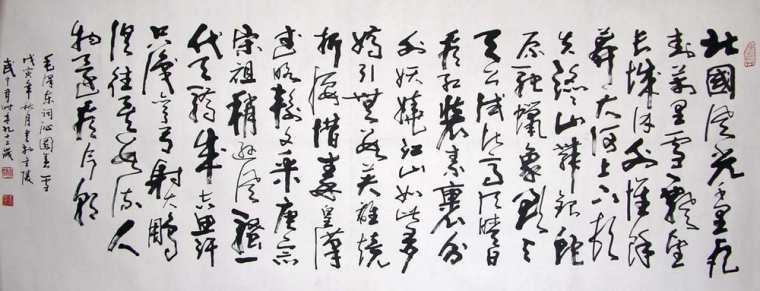 北國風光千里冰
封萬里雪飄望
長城内外惟餘
莽莽大河上下頓
失滔滔山舞銀蛇
原馳蠟象欲與
天公試比高須晴日
看紅裝素裹分
外妖嬈江山如此多
嬌引無數英雄競
折腰惜秦皇漢
武略輸文采唐宗
宋祖稍遜風騷一
代天驕成吉思汗
只識彎弓射大鵰
俱往矣數風流人
物還看今朝
毛澤東詞沁園春雪
戊寅年秋月書於金陵
武中奇時年九十二歲